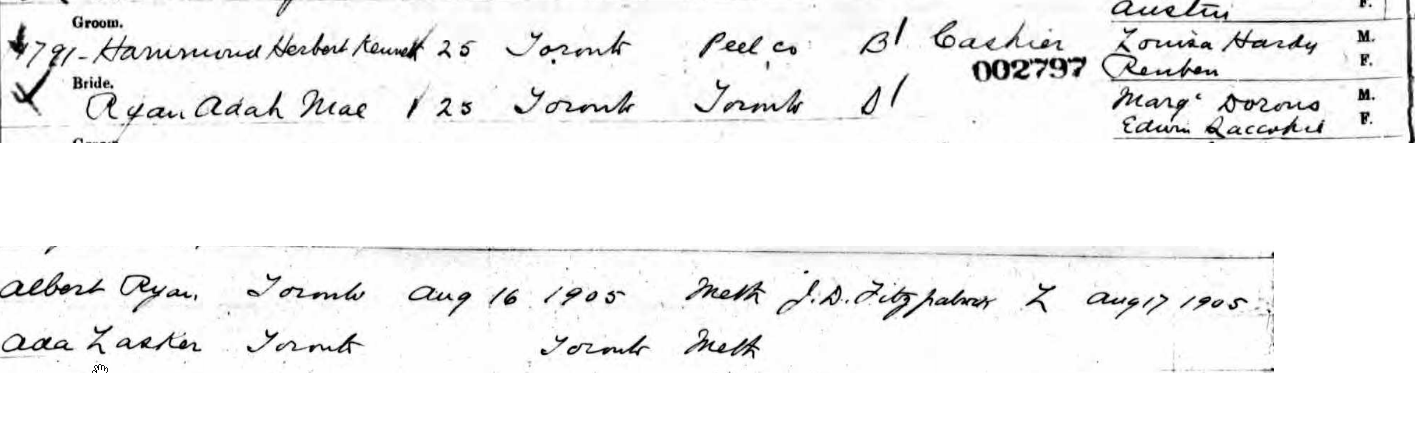 Austin F.
Groom.
791- Hammond Herbert Kennett 25 Toronto Peel co B Cashier Louisa Hardy M.
002797 Reuben F.
Bride.
Ryan Adah Mae 25 Toronto Toronto S Marg^t M.
Edwin F.
Albert Ryan Toronto Aug 16 1905 Meth J. D. Fitzpatrick L Aug 17 1905
Ada Lasker Toronto Toronto Meth